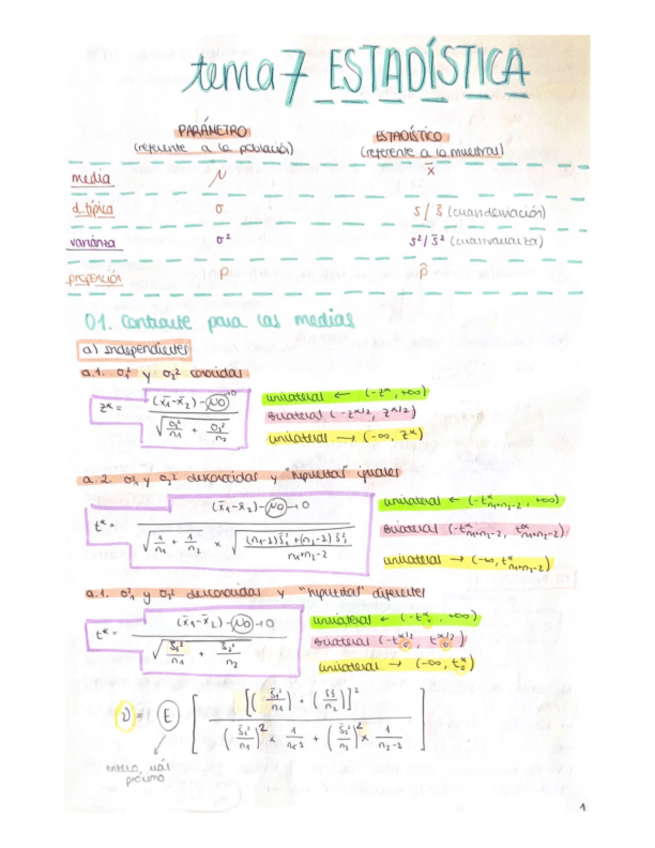 tema 7 ESTADÍSTICA
PARÁMETRO ESTADÍSTICO
(referente a la población) (referente a la muestras)
media μ x̄
d.típica σ s / s̄ (cuasidesviación)
varianza σ² s²/s̄² (cuasivarianza)
proporción p p̂
01. Contraste para las medias
a) independientes
a.1. σ₁² y σ₂² conocidas
z* = (x̄₁-x̄₂)-μ0→0 / √(σ₁²/n₁ + σ₂²/n₂)
unilateral ← (-zα, +∞)
Bilateral (-zα/2, zα/2)
unilateral → (-∞, zα)
a.2. σ₁ y σ₂² desconocidas y "supuestas" iguales
t* = (x̄₁-x̄₂)-μ0→0 / √(1/n₁ + 1/n₂) × √((n₁-1)s̄₁² + (n₂-1)s̄₂² / n₁+n₂-2)
unilateral ← (-tα n₁+n₂-2, +∞)
Bilateral (-tα n₁+n₂-2, tα n₁+n₂-2)
unilateral → (-∞, tα n₁+n₂-2)
a.1. σ₁² y σ₂² desconocidas y "supuestas" diferentes
t* = (x̄₁-x̄₂)-μ0→0 / √(s̄₁²/n₁ + s̄₂²/n₂)
unilateral ← (-tα ν, +∞)
Bilateral (-tα/2 ν, tα/2 ν)
unilateral → (-∞, tα ν)
ν = E [ [(s̄₁²/n₁) + (s̄₂²/n₂)]² / (s̄₁²/n₁)² × 1/n₁-1 + (s̄₂²/n₂)² × 1/n₂-1 ]
entero más
próximo
1